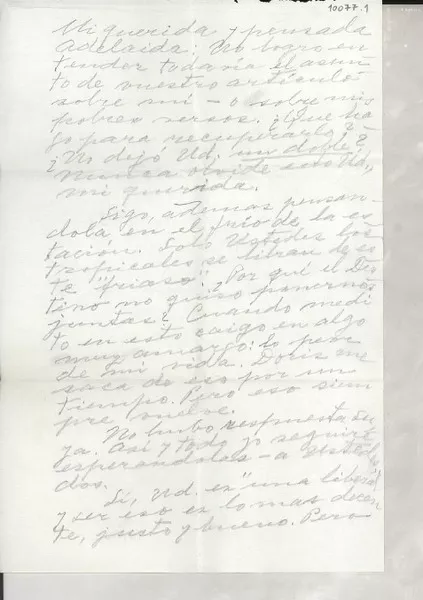 10077.1
Mi querida y pensada
Adelaida: No logro en
tender todavía el asun
to de vuestro artículo
sobre mí - o sobre mis
pobres versos. ¿Que ha
go para recuperarlo?
¿No dejó Ud. un doble?
Nunca olvide eso Ud.,
mi querida.
Sigo, además pensan-
dola en el frío de la es
tación. Solo Ustedes los
tropicales se libran de es
te "friaso". ¿Por qué el Des
tino no quiso ponernos
juntas? Cuando medi
to en esto caigo en algo
muy amargo: lo peor
de mi vida. Doris me
saca de eso por un
tiempo. Pero eso siem
pre vuelve.
No hubo respuesta su
ya. Así y todo yo seguiré
esperandolas - a Uste
dos.
Sí, Ud. es "una liberal"
y ser eso es lo mas decen
te, justo y bueno. Pero